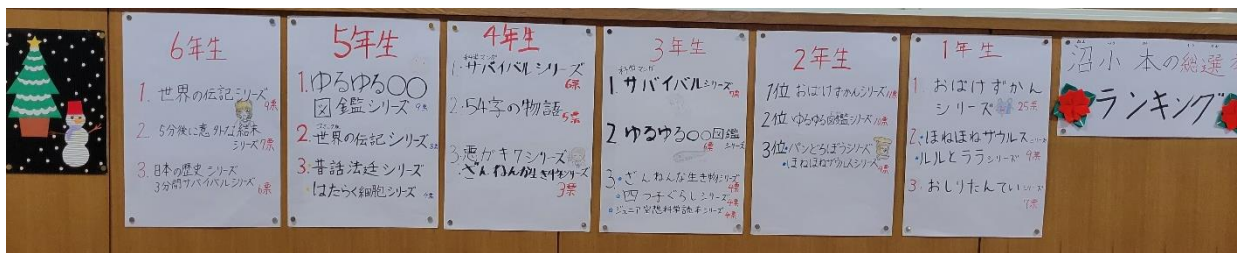 6年生
1. 世界の伝記シリーズ
2. 5分後に意外な結末
シリーズ7票
3. 日本の歴史シリーズ
3分間サバイバルシリーズ
6票
5年生
1. ゆるゆる〇〇
図鑑シリーズ
2. 世界の伝記シリーズ
3. 昔話法廷シリーズ
・はたらく細胞シリーズ
4年生
1. サバイバルシリーズ
6票
2. 54字の物語
5票
3. 悪ガキ7シリーズ
・ざんねんな生き物シリーズ
3票
3年生
1. サバイバルシリーズ
2 ゆるゆる〇〇図鑑
シリーズ
6票
3 ・ざんねんな生き物シリーズ
4票
・四つ子ぐらしシリーズ
4票
・ジュニア空想科学読本シリーズ
4票
2年生
1位 おばけずかんシリーズ
2位 ゆるゆる図鑑シリーズ
3位 ・パンどろぼうシリーズ
・ほねほねザウルスシリーズ
1年生
1. おばけずかん
シリーズ 25票
2. ・ほねほねサウルスシリーズ
・ルルとララシリーズ 9票
3. おしりたんていシリーズ
7票
沼小 本の総選
ランキング